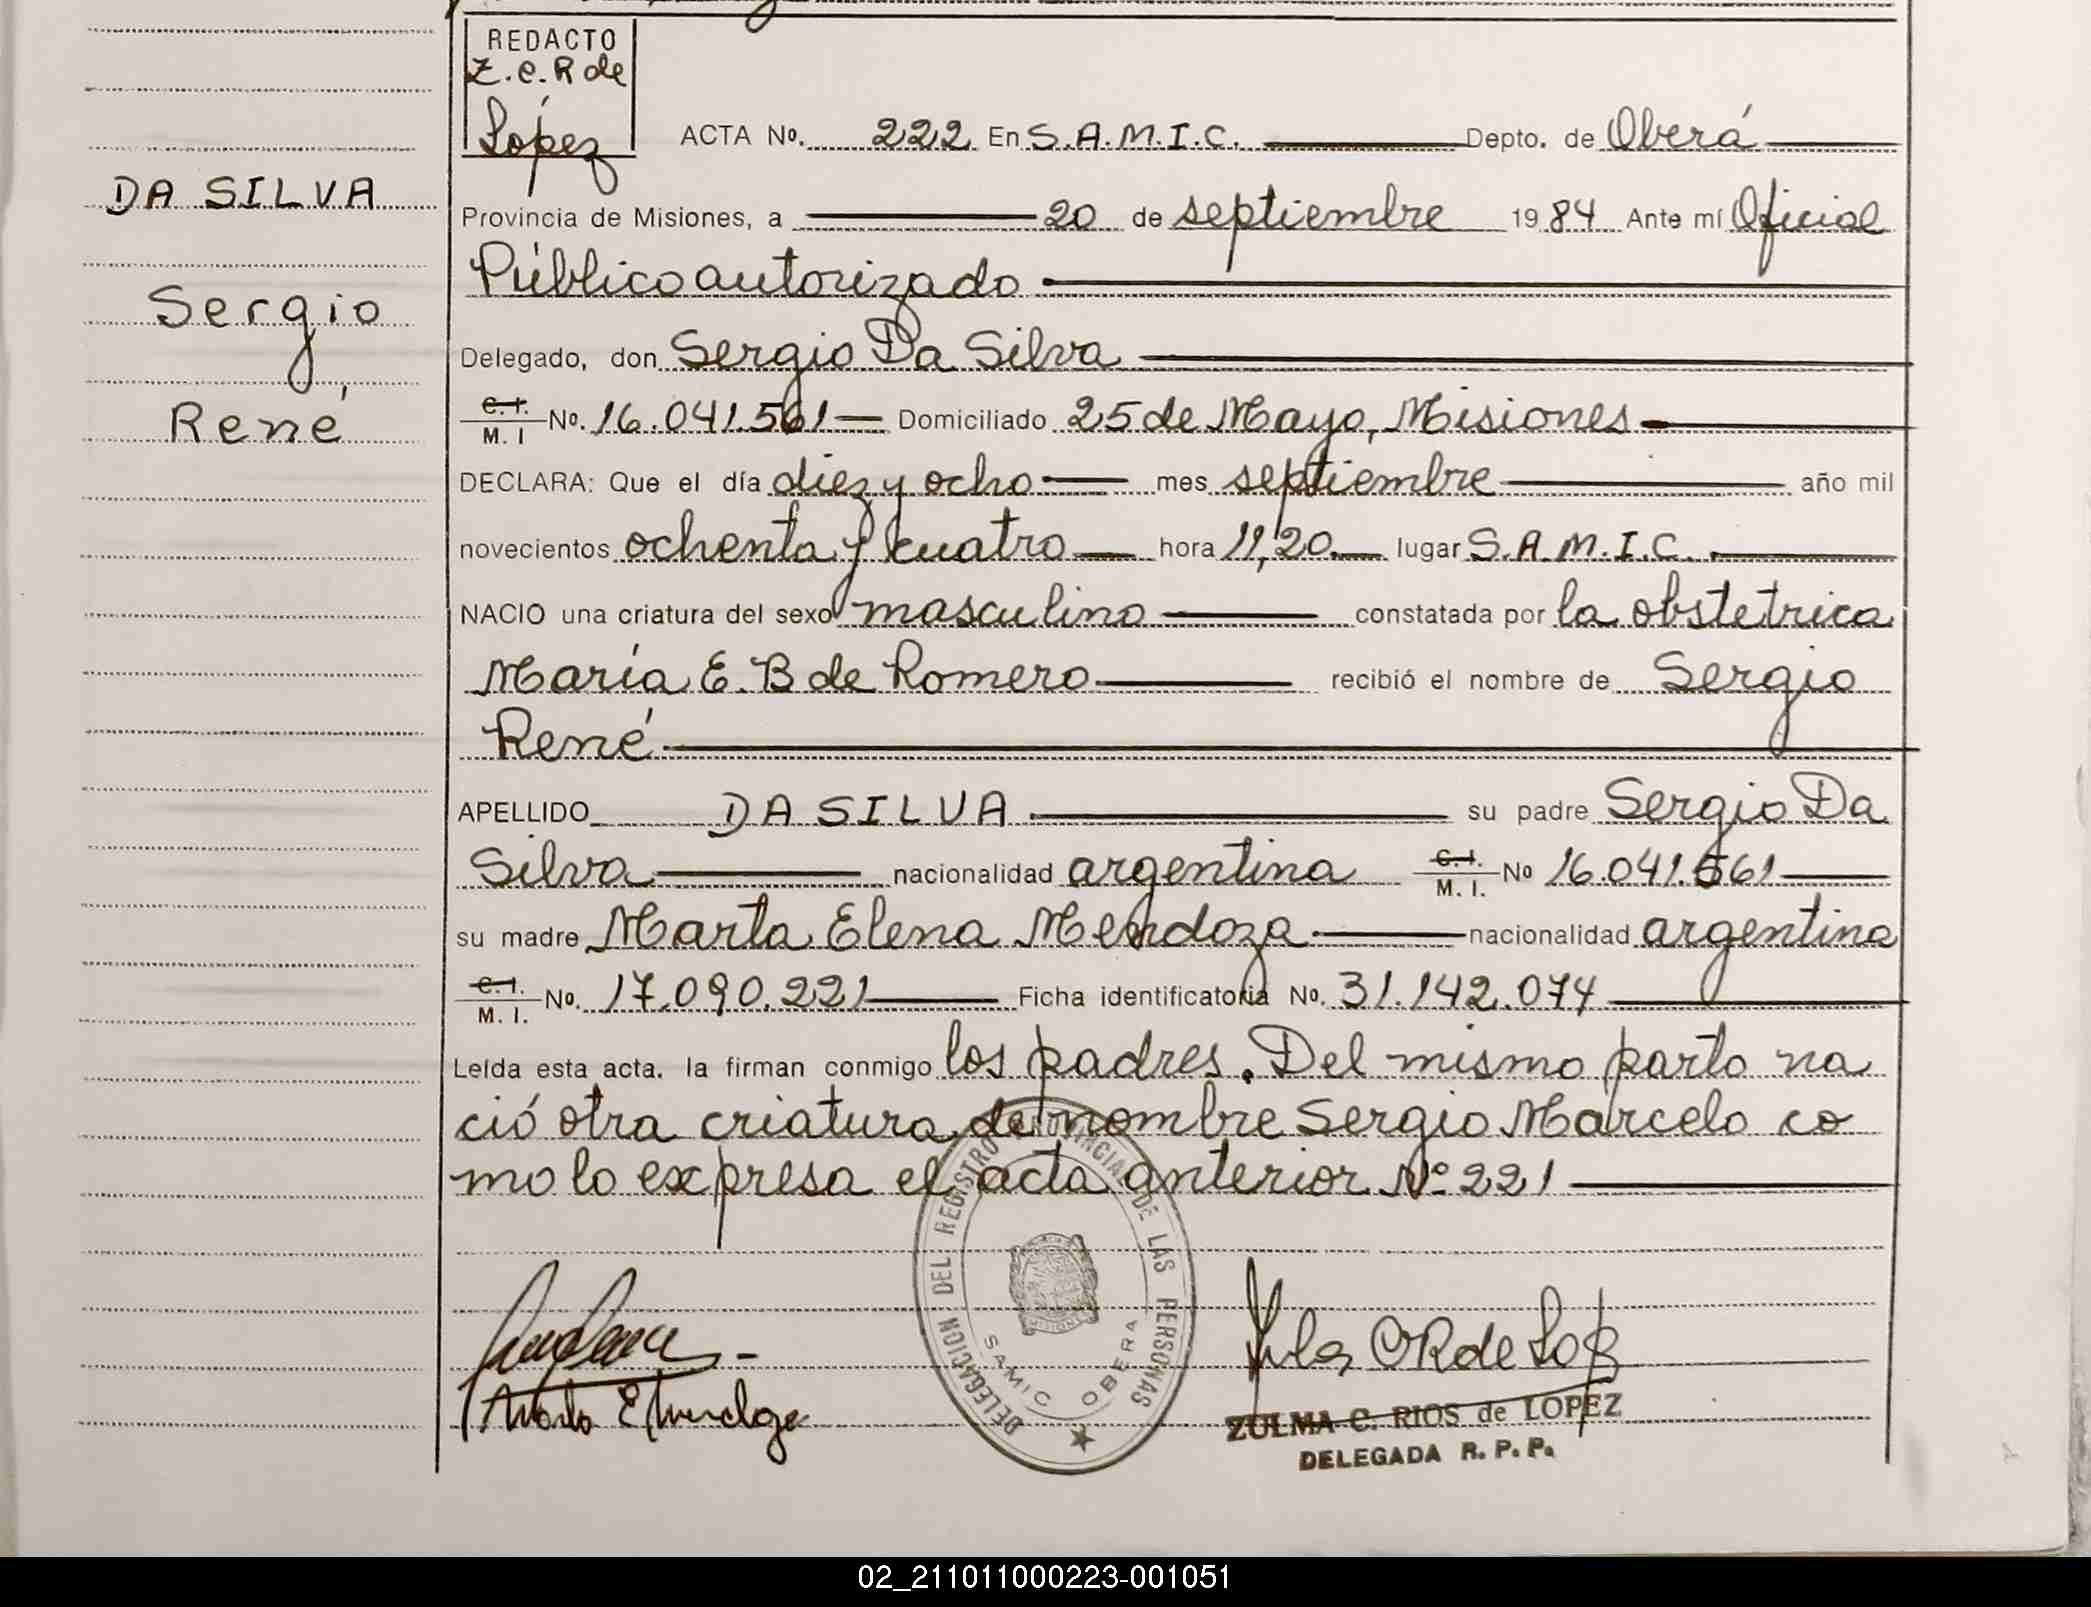 REDACTO
Z.C.R de
López
ACTA No. 222 En S.A.M.I.C. Depto. de Oberá
DA SILVA
Provincia de Misiones, a 20 de septiembre 1984 Ante mí Oficial
Público autorizado
Sergio
Delegado, don Sergio Da Silva
René
C. I. M. I No. 16.041.561 Domiciliado 25 de Mayo, Misiones
DECLARA: Que el día diez y ocho mes septiembre año mil
novecientos ochenta y cuatro hora 11,20 lugar S.A.M.I.C.
NACIO una criatura del sexo masculino constatada por la obstetrica
María E. B de Romero recibió el nombre de Sergio
René
APELLIDO DA SILVA su padre Sergio Da
Silva nacionalidad argentina C. I. M. I. No 16.041.561
su madre Marta Elena Mendoza nacionalidad argentina
C. I. M. I. No. 17.090.221 Ficha identificatoria No. 31.142.074
Leída esta acta. la firman conmigo los padres. Del mismo parto na
ció otra criatura de nombre Sergio Marcelo co
mo lo expresa el acta anterior Nº 221
DELEGACION DEL REGISTRO PROVINCIAL DE LAS PERSONAS
MISIONES
SAMIC OBERA
Marta E Mendoza
C R de Lop
ZULMA C. RIOS de LOPEZ
DELEGADA R. P. P.
02_211011000223-001051